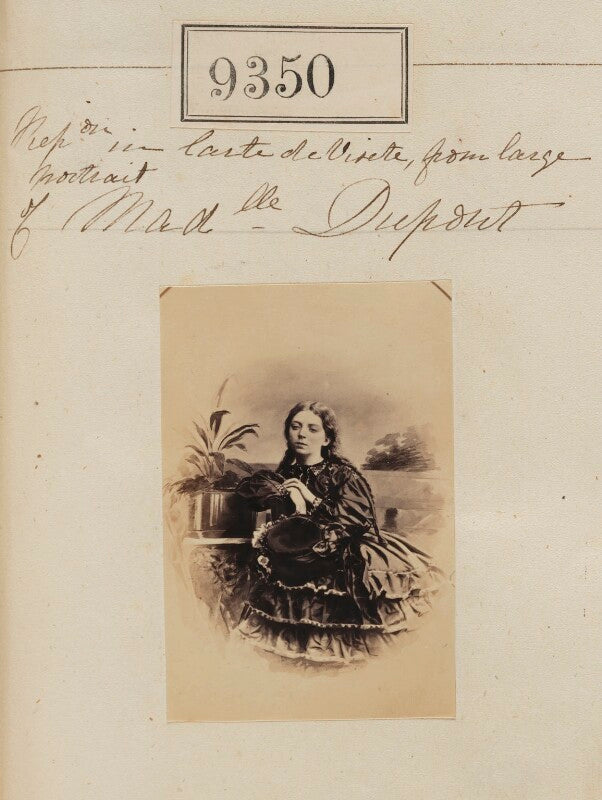 9350
Rep^on in Carte de Visite, from large
Portrait
of Mad^lle - Dupont